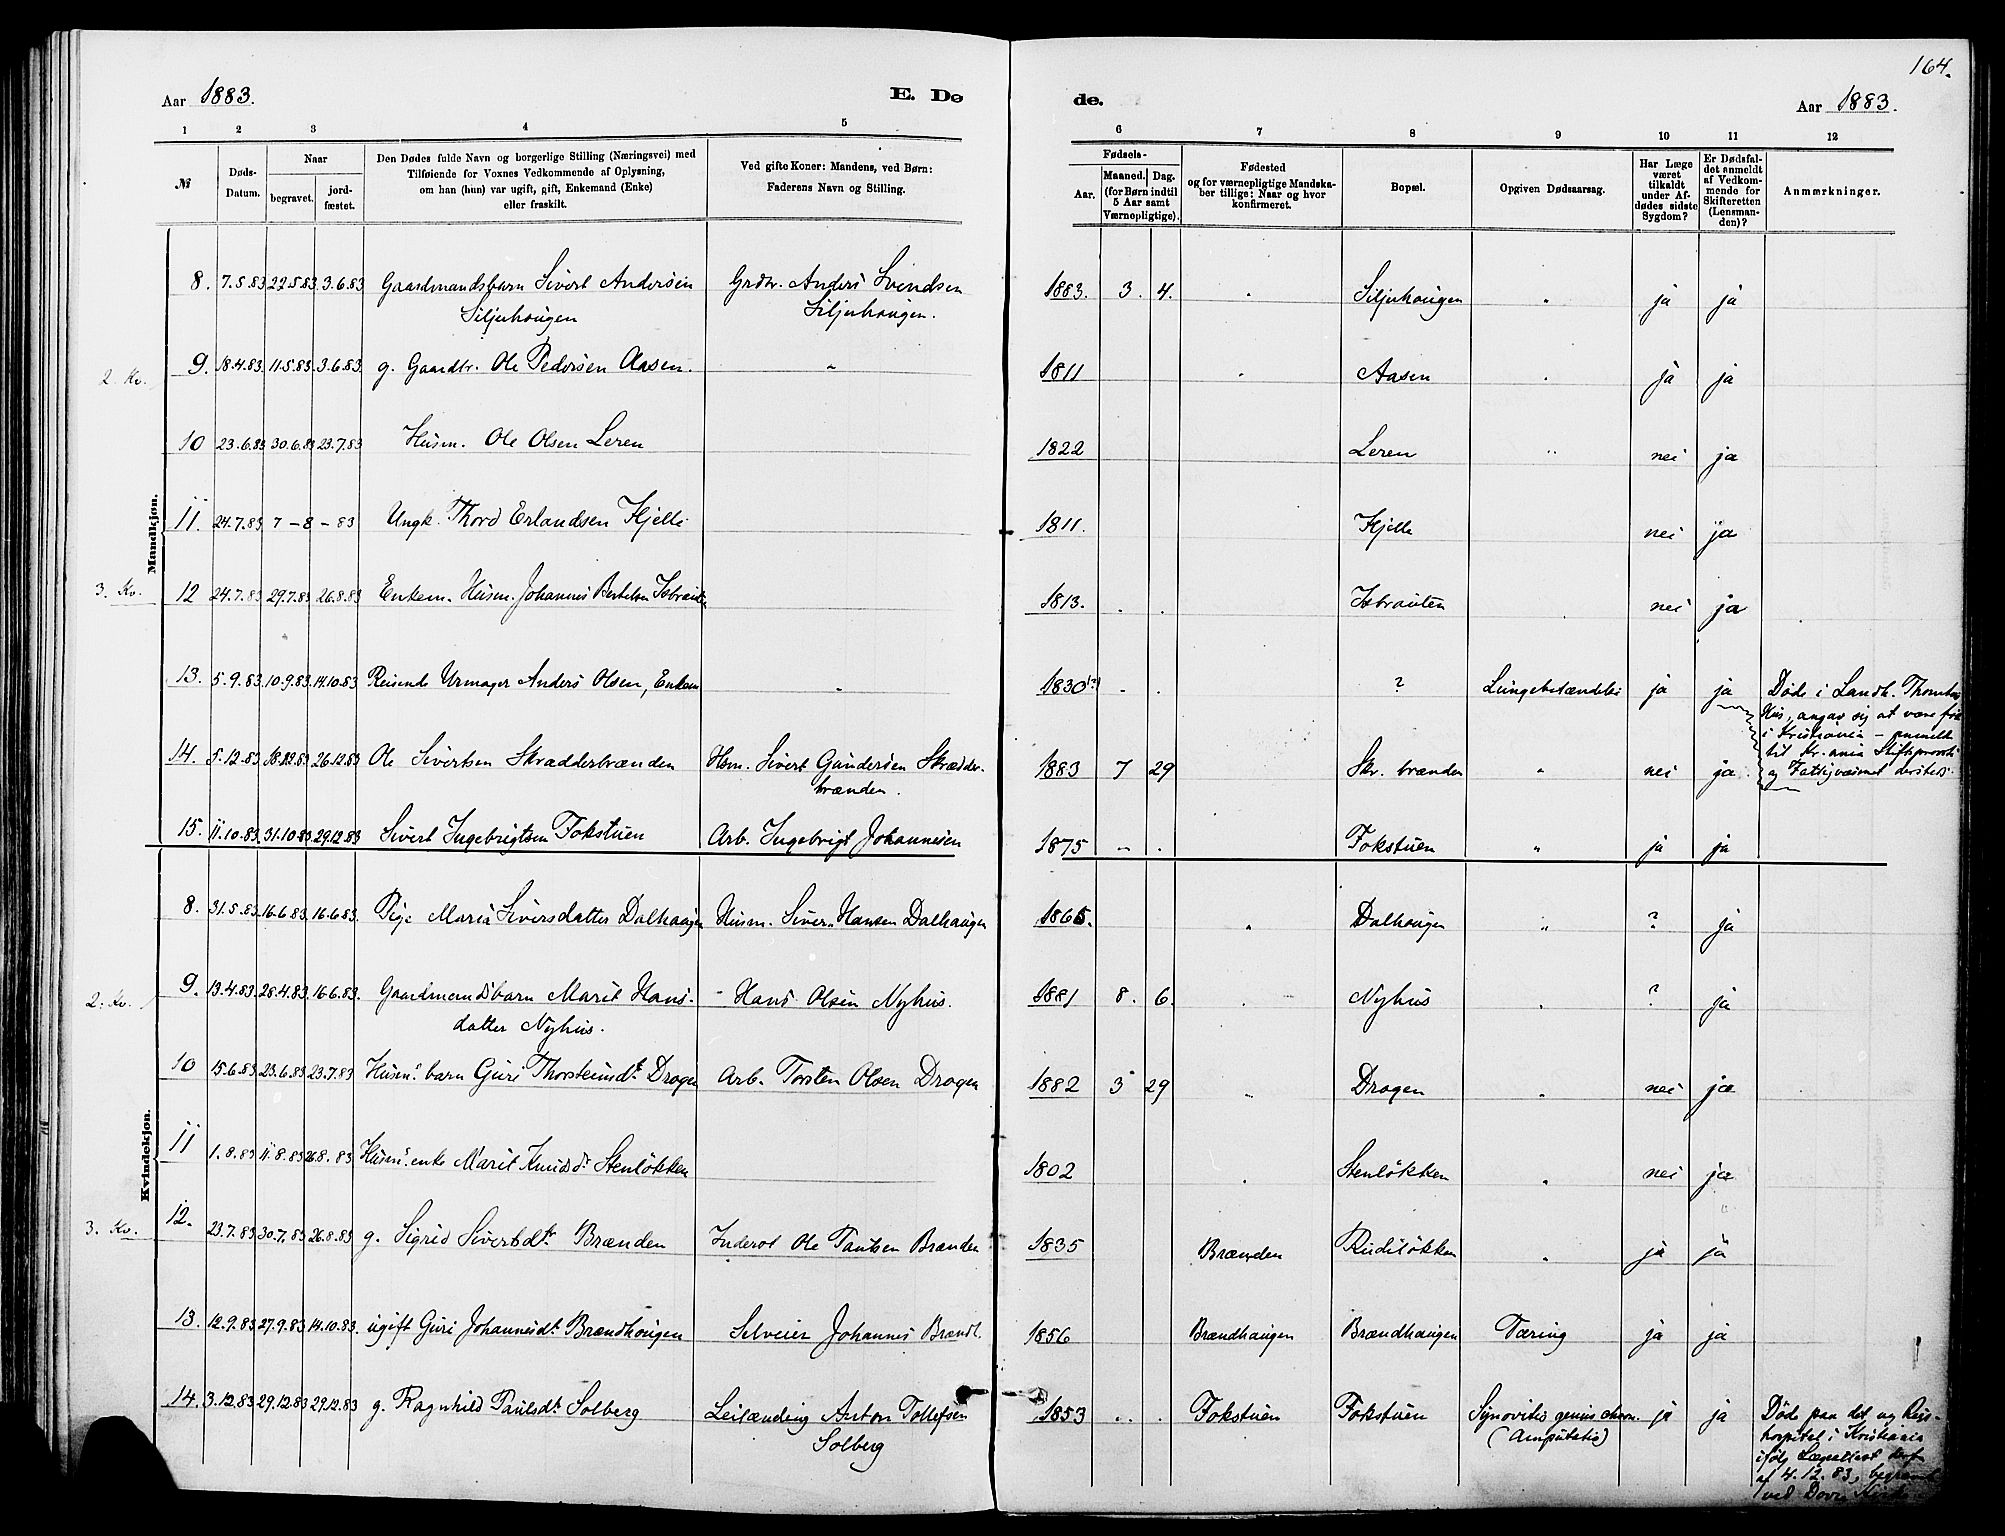 164.
Aar 1883. E. Dø de. Aar 1883.
1 2 3 4 5 6 7 8 9 10 11 12
№ Døds-Datum. Naar begravet. jord-fæstet. Den Dødes fulde Navn og borgerlige Stilling (Næringsvei) med Tilføiende for Voxnes Vedkommende af Oplysning, om han (hun) var ugift, gift, Enkemand (Enke) eller fraskilt. Ved gifte Koner: Mandens, ved Børn: Faderens Navn og Stilling. Fødsels- Aar. Maaned. Dag. (for Børn indtil 5 Aar samt Værnepligtige). Fødested og for værnepligtige Mandskaber tillige: Naar og hvor konfirmeret. Bopæl. Opgiven Dødsaarsag. Har Læge været tilkaldt under Afdødes sidste Sygdom? Er Dødsfaldet anmeldt af Vedkommende for Skifteretten (Lensmanden)? Anmærkninger.
Mandkjøn.
8. 7.5.83 22.5.83 3.6.83 Gaardmandsbarn Sivert Andersen Grdbr. Anders Svendsen 1883. 3. 4. " Siljuhaugen " ja ja
Siljuhaugen Siljuhaugen.
2. Kv. 9. 18.4.83 11.5.83 3.6.83 g. Gaardbr. Ole Pedersen Aasen. " 1811 " Aasen " ja ja
10 23.6.83 30.6.83 23.7.83 Husm. Ole Olsen Leren 1822 Leren " nei ja
11. 24.7.83 7-8-83 Ungk. Thord Erlandsen Kjelle 1811. Kjelle nei ja
3. Kv. 12 24.7.83 29.7.83 26.8.83 Enkem. Husm. Johannes Bertelsen 1813. " " nei ja
13. 5.9.83 10.9.83 14.10.83 Reisende Urmager Anders Olsen, Enkem " 1830(?) " " ? Lungebetændelse ja ja Døde i Landh.
Hus, angav sig at være
i Kristiania – anmeldt
til Kr.ania Stiftsprovsti
og Fattigvæsenet dersteds.
14. 5.12.83 18.12.83 26.12.83 Ole Sivertsen Skrædderbrænden Hsm. Sivert Gundersen Skrædder- 1883 7 29 Skr. brænden " nei ja
brænden.
15. 11.10.83 31.10.83 29.12.83 Sivert Ingebrigtsen Fokstuen Arb. Ingebrigt Johannesen 1875 " " Fokstuen " ja ja
Kvindekjøn.
8. 31.5.83 16.6.83 16.6.83. Pige Marie Siversdatter Dalhaugen Husm. Siver Hansen Dalhaugen 1865. " Dalhaugen " ? ja
2. Kv. 9. 13.4.83 28.4.83 16.6.83. Gaardmandsbarn Marit Hans- " Hans Olsen Nyhus. 1881 8. 6. " Nyhus " ? ja
datter Nyhus.
10 15.6.83 23.6.83 23.7.83 Husms barn Guri Thorsteinsdt. Drogen Arb. Torsten Olsen Drogen 1882 3 29 " Drogen " nei ja
11 1.8.83 11.8.83 26.8.83 Husms enke Marit Knudsdt Stenløkken 1802 " Stenløkken " nei ja
3. Kv. 12. 23.7.83 30.7.83 26.8.83 g. Sigrid Sivertsdtr Brænden Inderst Ole Paulsen Brænden 1835 Brænden Rudiløkken " ja ja
13. 12.9.83 27.9.83 14.10.83. ugift Guri Johannesdt. Brændhaugen Selveier Johannes Brændh. 1856 Brændhaugen Brændhaugen Tæring ja ja
14. 3.12.83 29.12.83 29.12.83 g. Ragnhild Paulsdt. Solberg Leilænding Anton Tollefsen 1853 " " Fokstuen Fokstuen Synovitis genus chron. ja ja Døde paa det og Rigs-
Solberg (Amputatio) hospital i Kristiania
ifølg Lægeattest derf.
af 4.12.83, begravet
ved Dovre Kirke